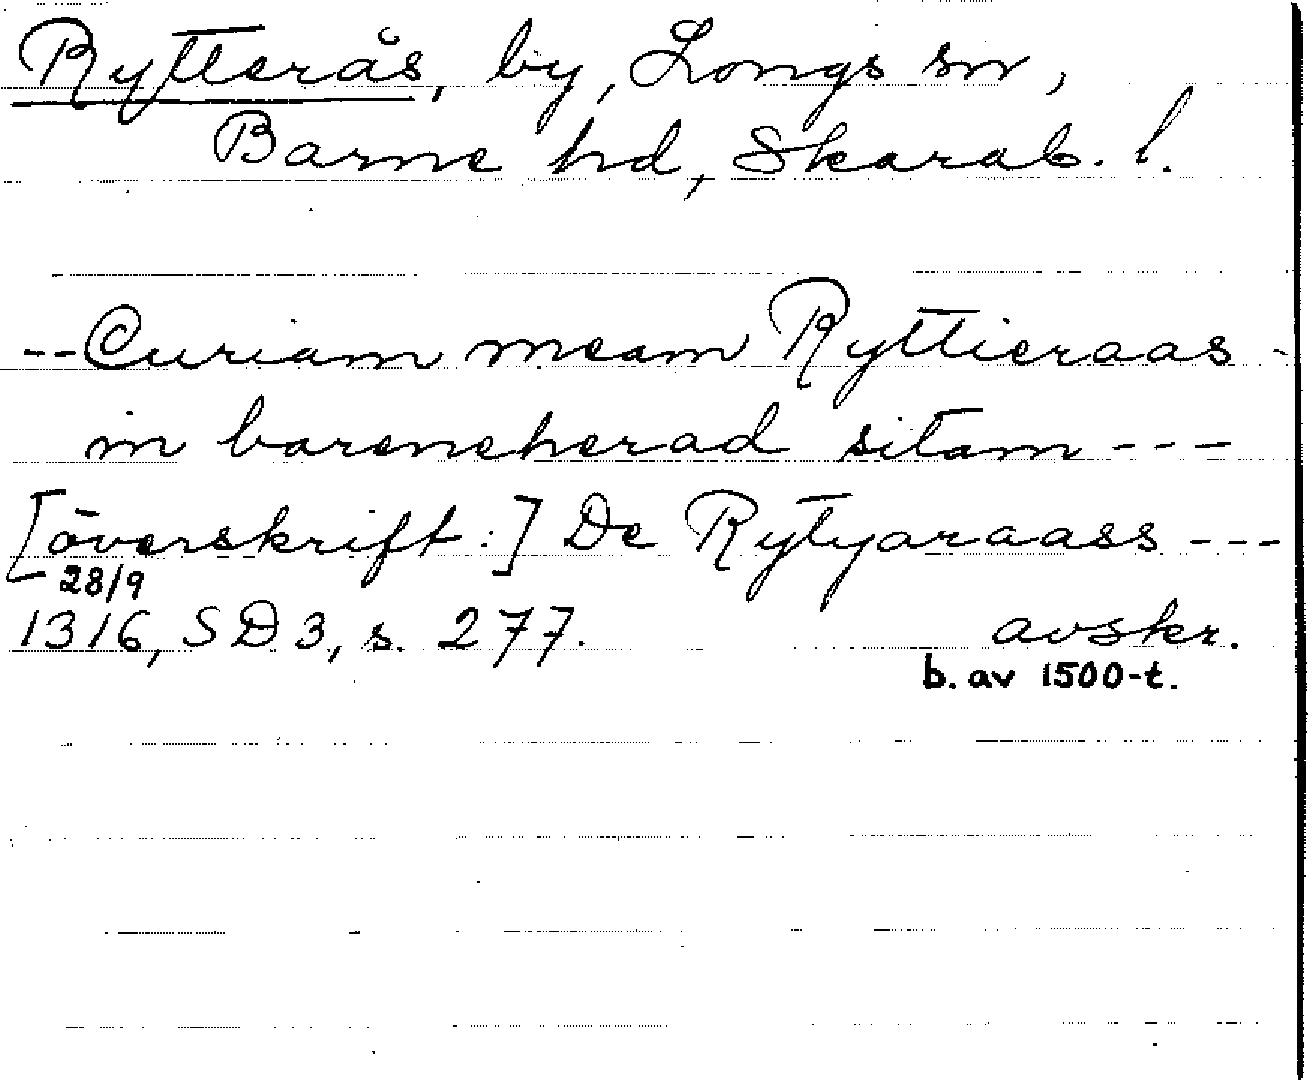 Rytterås, by, Longs sn,
Barne hd, Skarab. l.
--Curiam meam Ryttieraas -
in bareneherad sitam ---
[överskrift:] De Rytyaraass ---
28/9
1316, SD 3, s. 277. avskr.
b. av 1500-t.